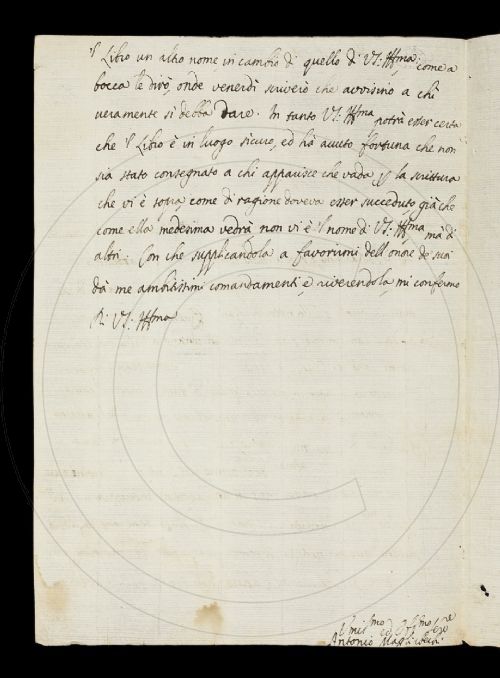 il Libro un altro nome, in cambio di quello di VS. Illma, come a
bocca le dirò, onde venerdì scriverò che avvisino a chi
veramente si debba dare. In tanto VS. Illma potrà esser certa
che il Libro è in luogo sicuro, ed hà avuto fortuna che non
sia stato consegnato a chi apparisce che vada p la scrittura
che vi è sopra come di ragione doveva esser succeduto, già che
come ella medesima vedrà non vi è il nome di VS. Illma mà di
altri. Con che supplicandola a favorirmi dell'onore de' suoi
dà me ambitissimi comandamenti, e riverendola, mi confermo
Di VS. Illma
Umilmo ed Obbmo Sere
Antonio Magliabechi